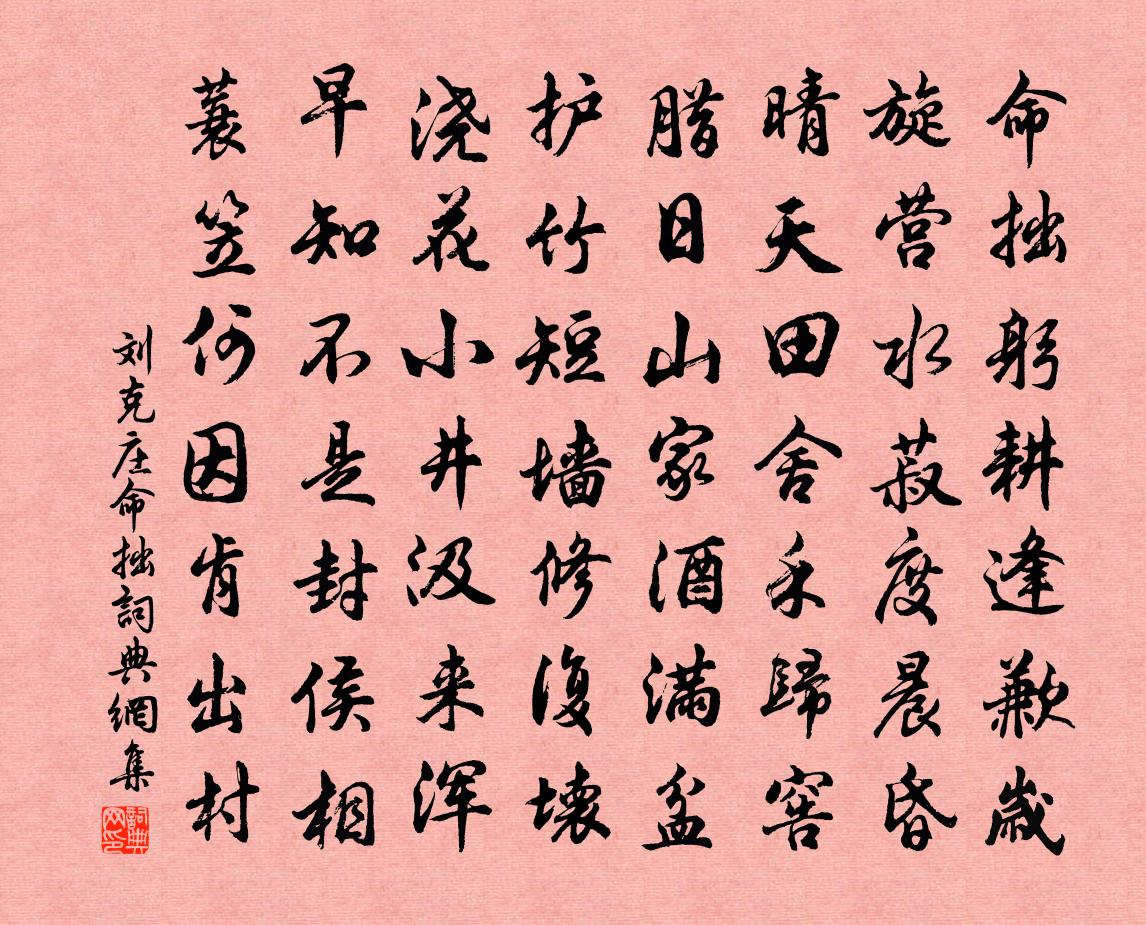 命拙躬耕逢歉歲
旋营水菽度晨昏
晴天田舍禾歸窖
腊日山家酒满盆
护竹短墙修復壊
浇花小井汲来浑
早知不是封侯相
蓑笠何因肯出村
刘克庄命拙詞典網集
詞典网印